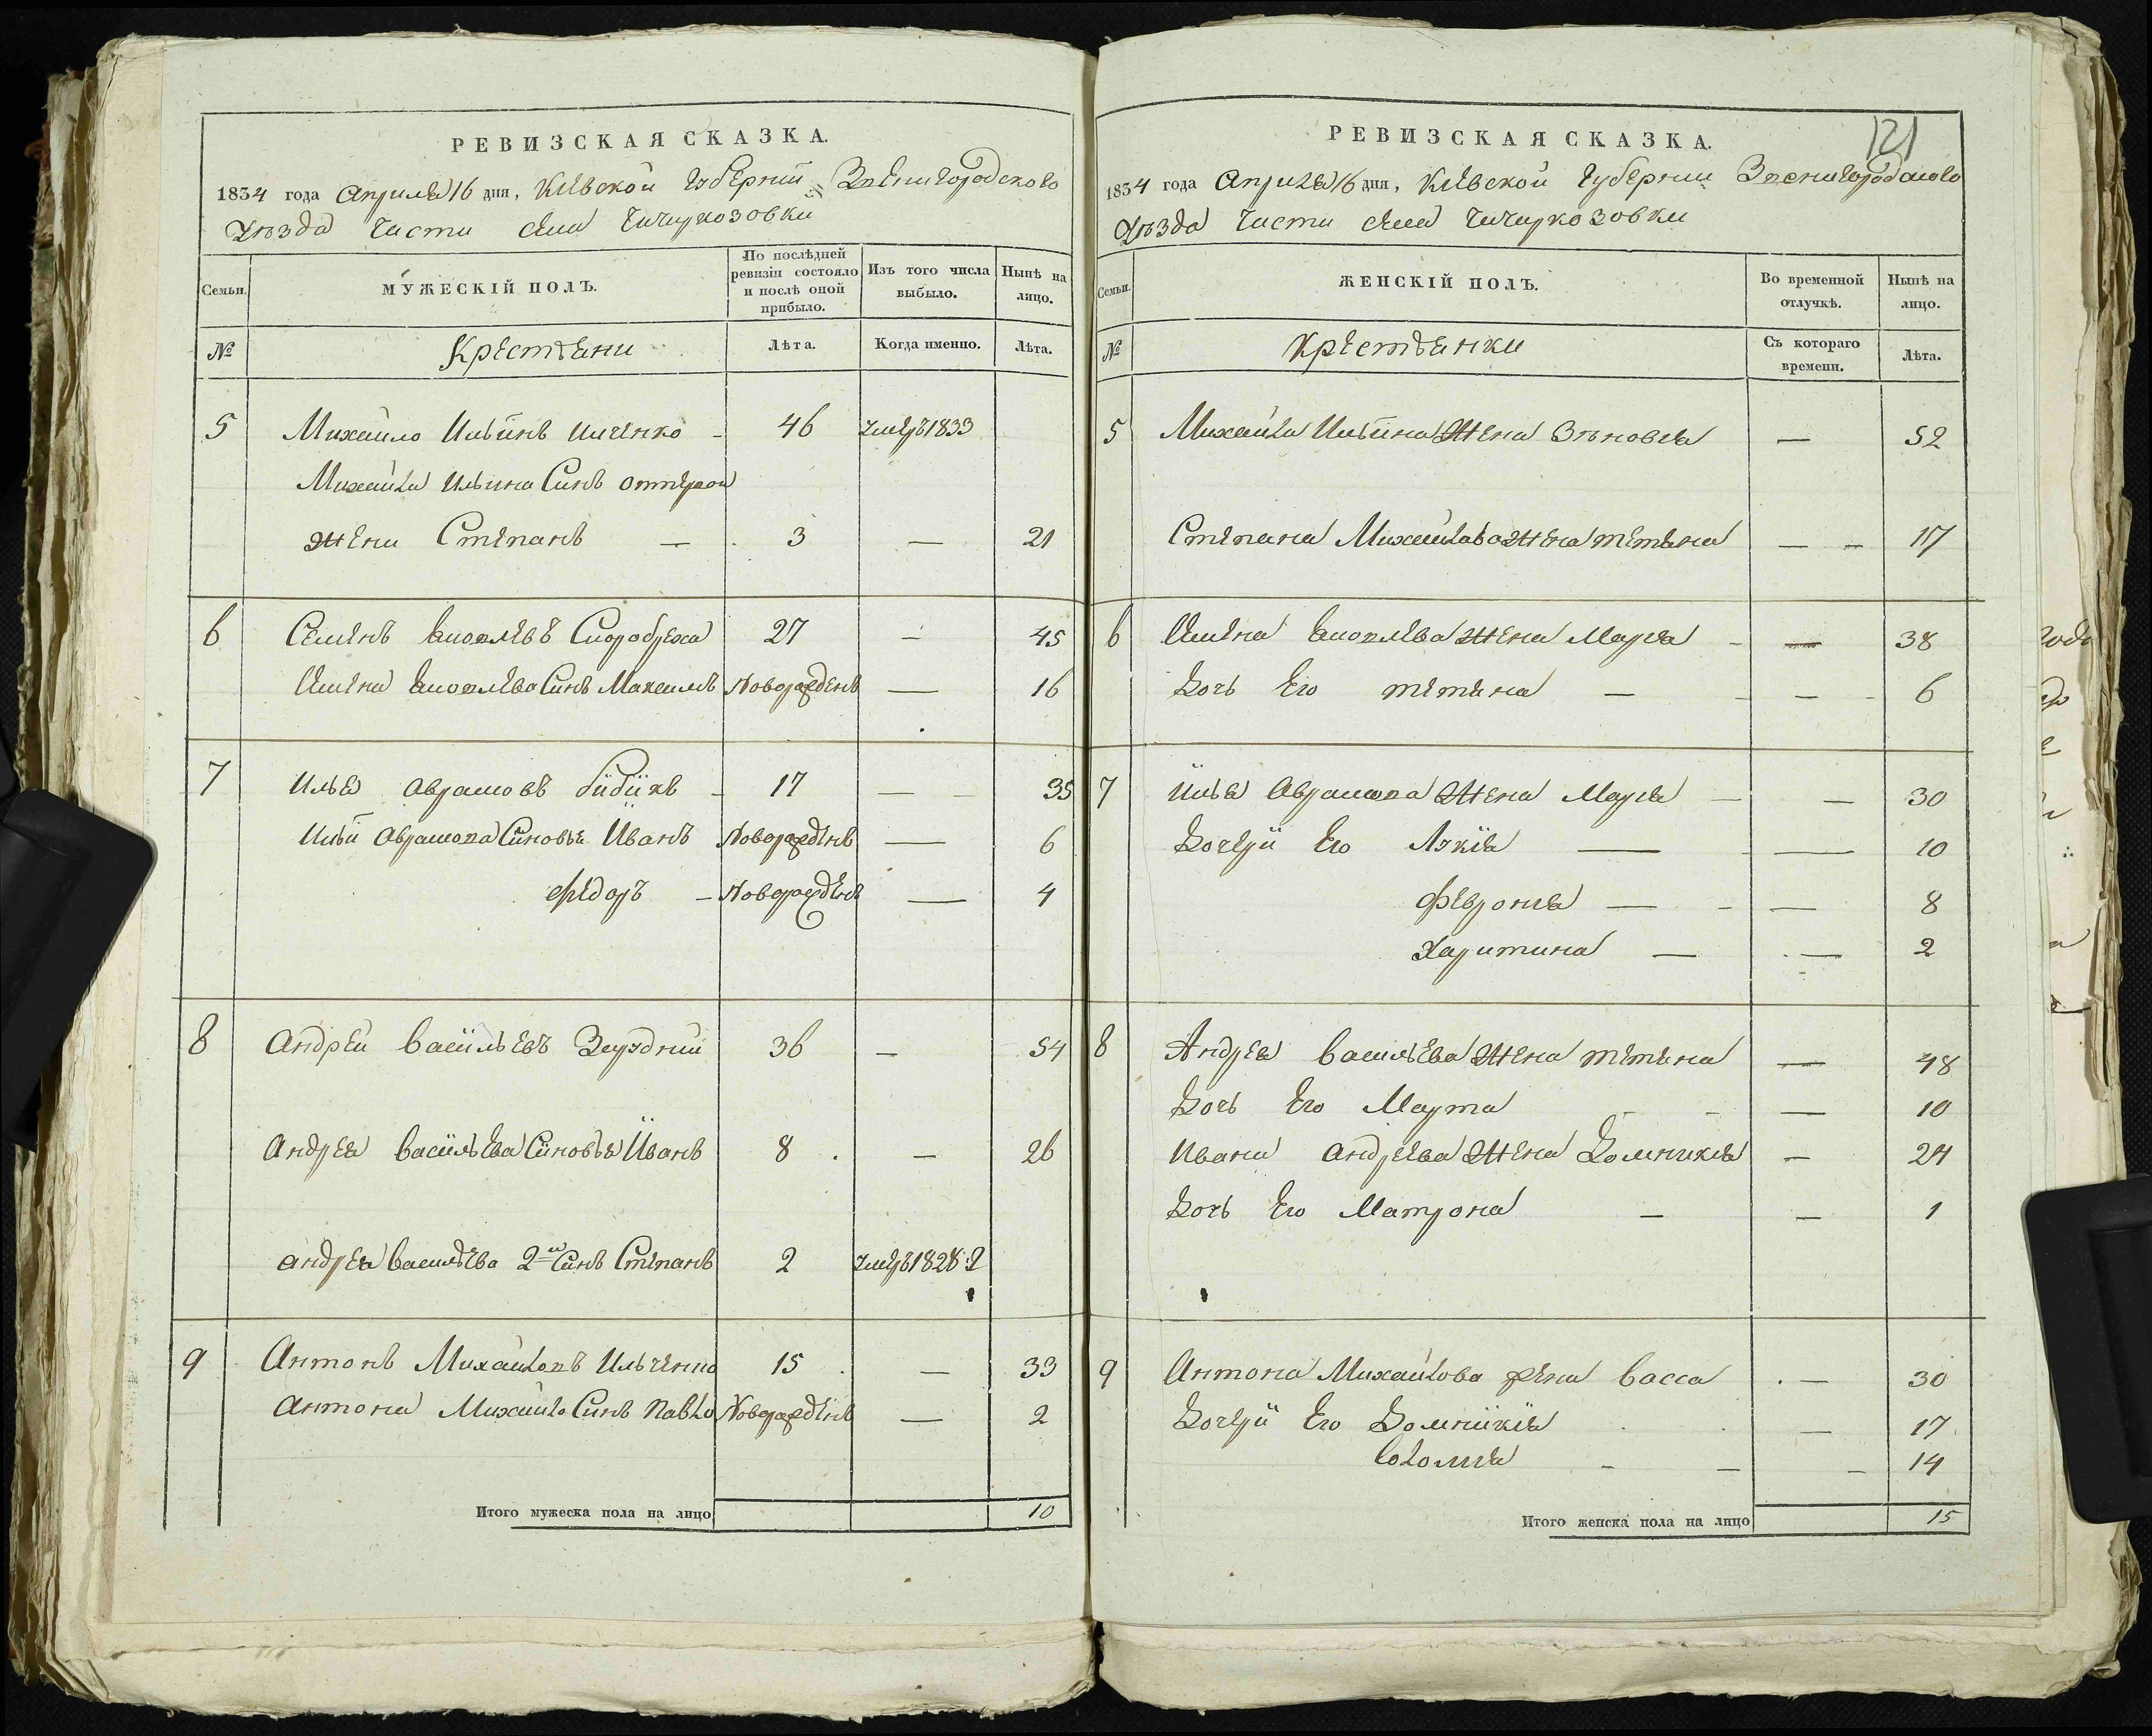 РЕВИЗСКАЯ СКАЗКА.
1834 года Апреля 16 дня, Кіевской Губерніи Звенигородского
Уезда Части села Чичиркозовки
Семьи.
МУЖЕСКІЙ ПОЛЪ.
По послѣдней ревизіи состояло и послѣ оной прибыло.
Изъ того числа выбыло.
Нынѣ на лицо.
№
Крестьяни
Лѣта.
Когда именно.
Лѣта.
5 Михайло Ильинъ Илченко 46 умеръ 1833
Михайла Ильина Синъ отперой
жени Степанъ — 3 — 21
6 Семенъ Яковлевъ Скоробреха 27 — 45
Семена Яковлева Синъ Максимъ Новорожденъ — 16
7 Илья Аврамовъ 17 — 35
Ильи Аврамова Синовья Иванъ Новорожденъ — 6
Федоръ — Новорожденъ — 4
8 Андрей Васильевъ 36 — 54
Андрея Васильева Синовья Иванъ 8 — 26
Андрея Васильева 2й Синъ Степанъ 2 умеръ 1828
9 Антонъ Михайловъ Ильченко 15 — 33
Антона Михайло Синъ Павло Новорожденъ — 2
Итого мужеска пола на лицо 10
121
РЕВИЗСКАЯ СКАЗКА.
1834 года Апреля 16 дня, Кіевской Губерніи Звенигородского
Уезда Части села Чичиркозовки
Семьи.
ЖЕНСКІЙ ПОЛЪ.
Во временной отлучкѣ.
Нынѣ на лицо.
№
Крестьянки
Съ котораго времени.
Лѣта.
5 Михайла Ильина Жена Зѣновея — 52
Степана Михайлово Жена Тетяна — — 17
6 Семена Яковлева Жена Марея — 38
Дочь Его Тетяна — — 6
7 Илья Аврамова Жена Марея — — 30
Дочери Его Лукія — — 10
Феврония — — 8
Харитина — — 2
8 Андрея Васильева Жена Тетяна — 48
Дочь Его Марта — 10
Ивана Андреева Жена Домникия — 24
Дочь Его Матрона — — 1
9 Антона Михайлова жена Васса — 30
Дочери Его Домникія — 17
Соломия — — — 14
Итого женска пола на лицо 15